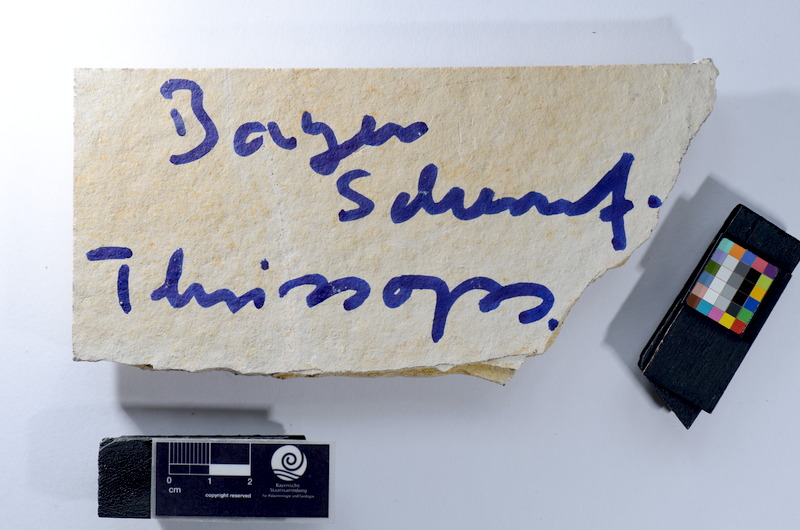 Bayer
Schernf.
Thrissops.
0 1 2
cm
copyright reserved
Bayerische
Staatssammlung
für Paläontologie und Geologie